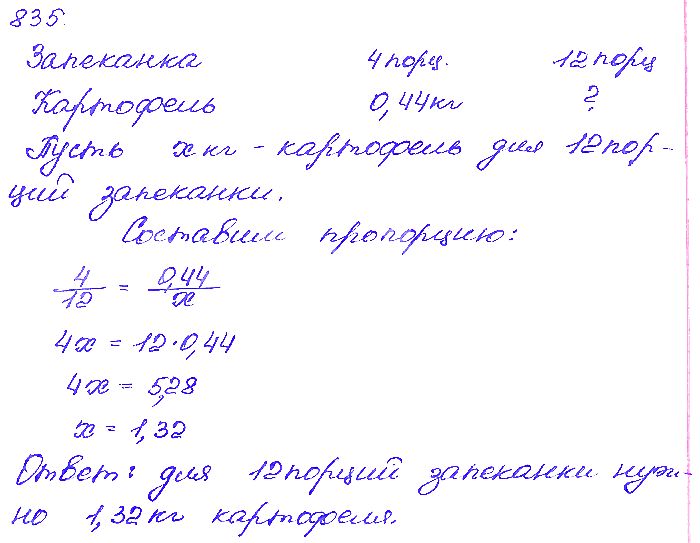 835.
Запеканка 4 порц. 12 порц
Картофель 0,44 кг ?
Пусть x кг - картофель для 12 пор-
ций запеканки.
Составим пропорцию:
4/12 = 0,44/x
4x = 12·0,44
4x = 5,28
x = 1,32
Ответ: для 12 порций запеканки нуж-
но 1,32 кг картофеля.